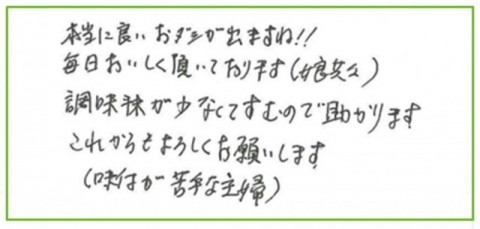 本当に良いおダシが出ますね!!
毎日おいしく頂いております(娘共々)
調味球が少なくてすむので助かります
これからもよろしくお願いします
(味付が苦手な主婦)